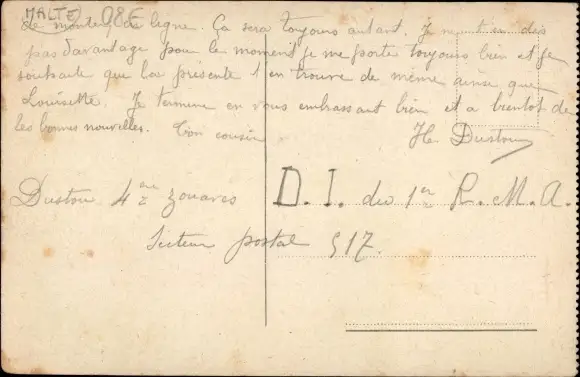 MALTE 08E
Le monter de ligne. Ça sera toujours autant. Je ne t'en dis
pas davantage pour le moment je me porte toujours bien et je
souhaite que la présente t'en trouve de même ainsi que
Louisette. Je termine en vous embrassant bien et a bientot de
les bonnes nouvelles. Ton cousin
H. Dustou
Dustou 4me zouaves
D. I. du 1er R. M. A.
Secteur postal 517.